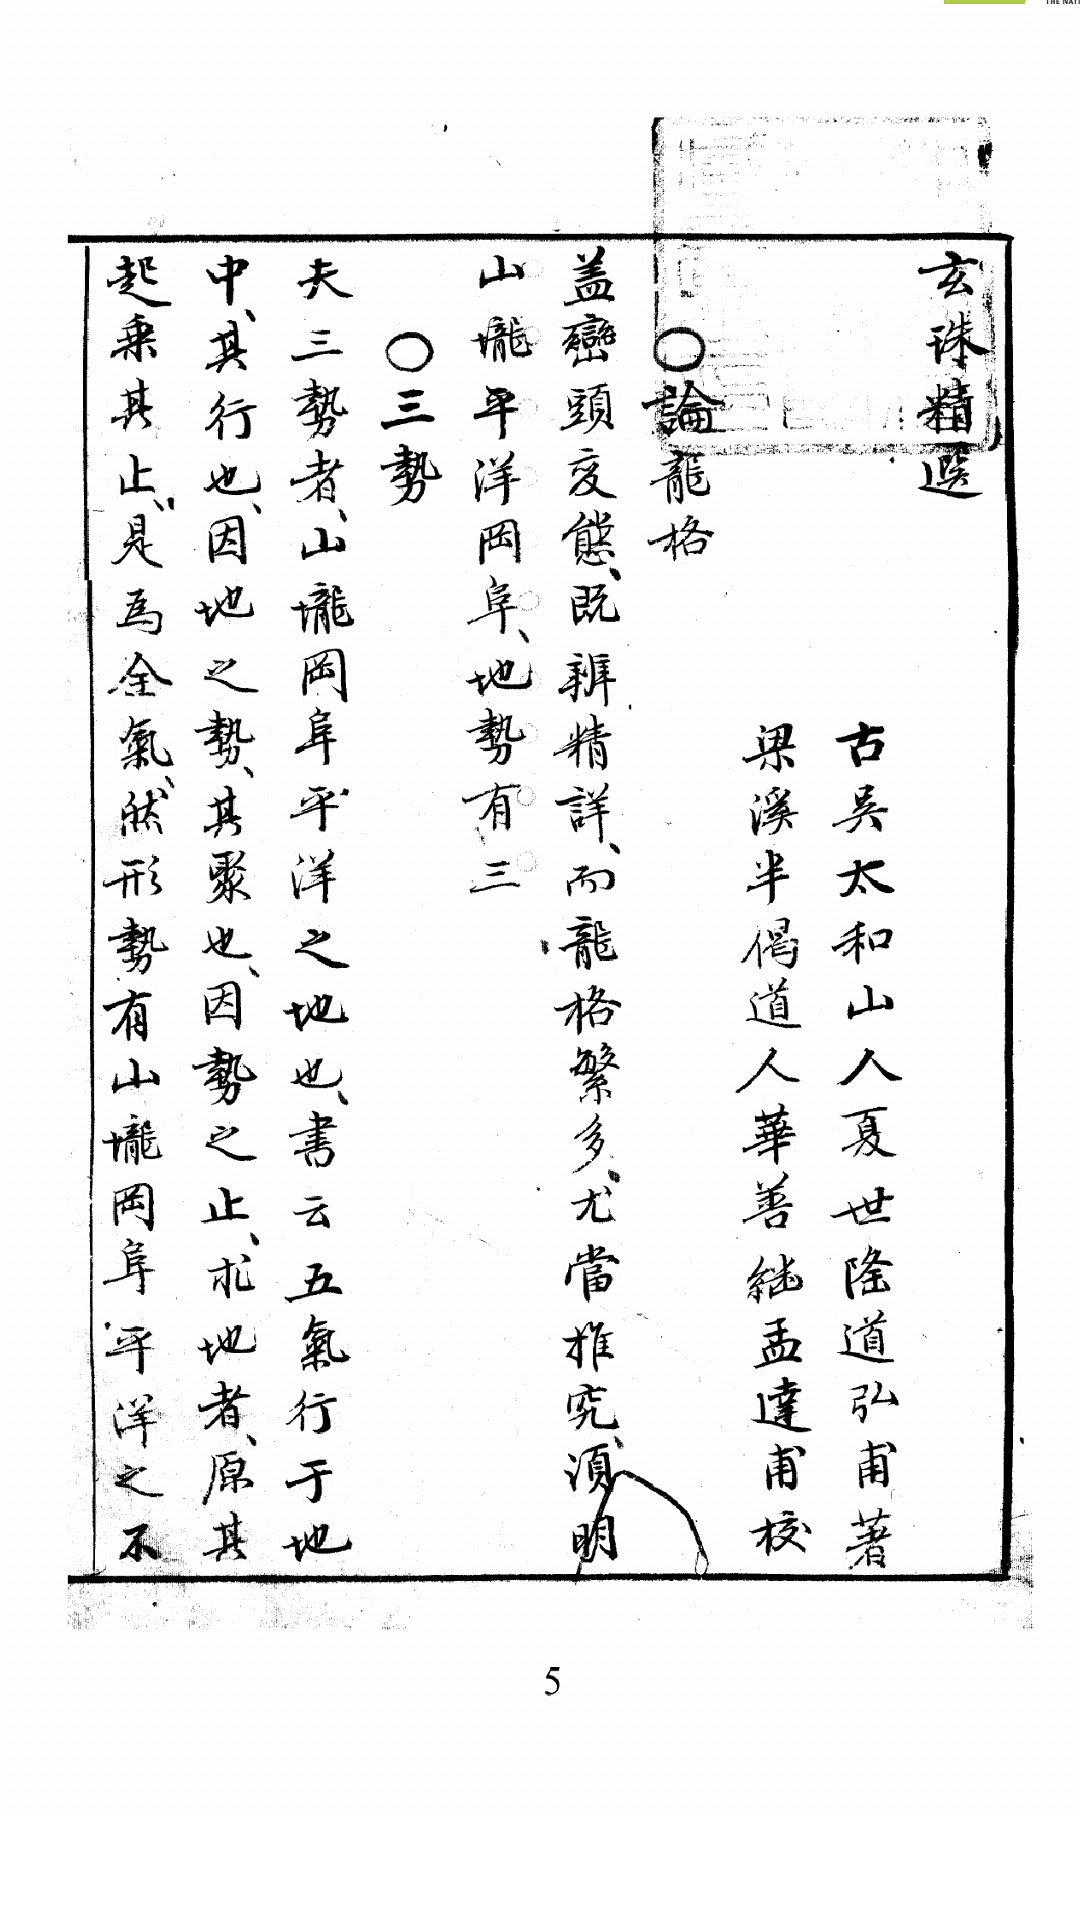 THE NATI
玄珠精選
古吳太和山人夏世隆道弘甫著
梁溪半偈道人華善継孟達甫校
〇論龍格
盖巒頭变態、既辨精詳、而龍格繁多、尤當推究、須明
山壠平洋岡阜、地勢有三
〇三勢
夫三勢者、山壠岡阜平洋之地也、書云五氣行于地
中、其行也、因地之勢、其聚也、因勢之止、求地者、原其
起乘其止、是為全氣、然形勢有山壠岡阜平洋之不
5